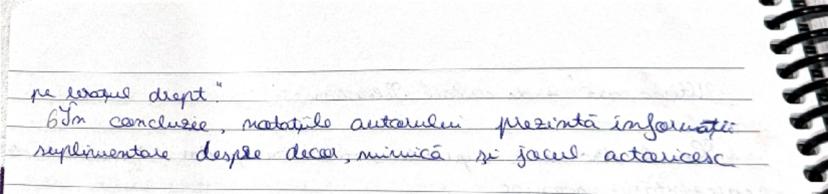 pe brațul drept."
6În concluzie, notațiile autorului prezintă informații
suplimentare despre decor, mimică și jocul actoricesc